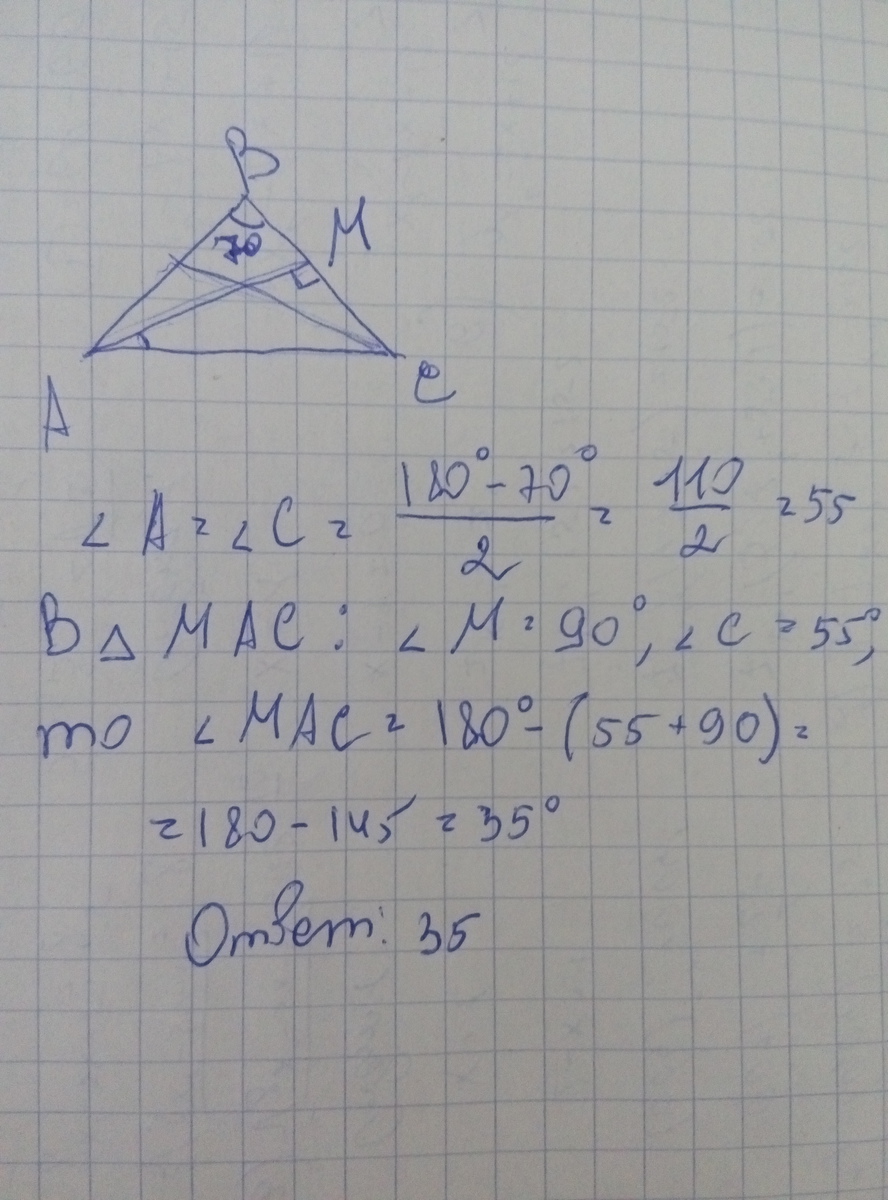 B
70
M
A
C
∠ A = ∠ C = (180° - 70°)/2 = 110/2 = 55
В △ MAC: ∠ M = 90°, ∠ C = 55°,
то ∠ MAC = 180° - (55 + 90) =
= 180 - 145 = 35°
Ответ: 35